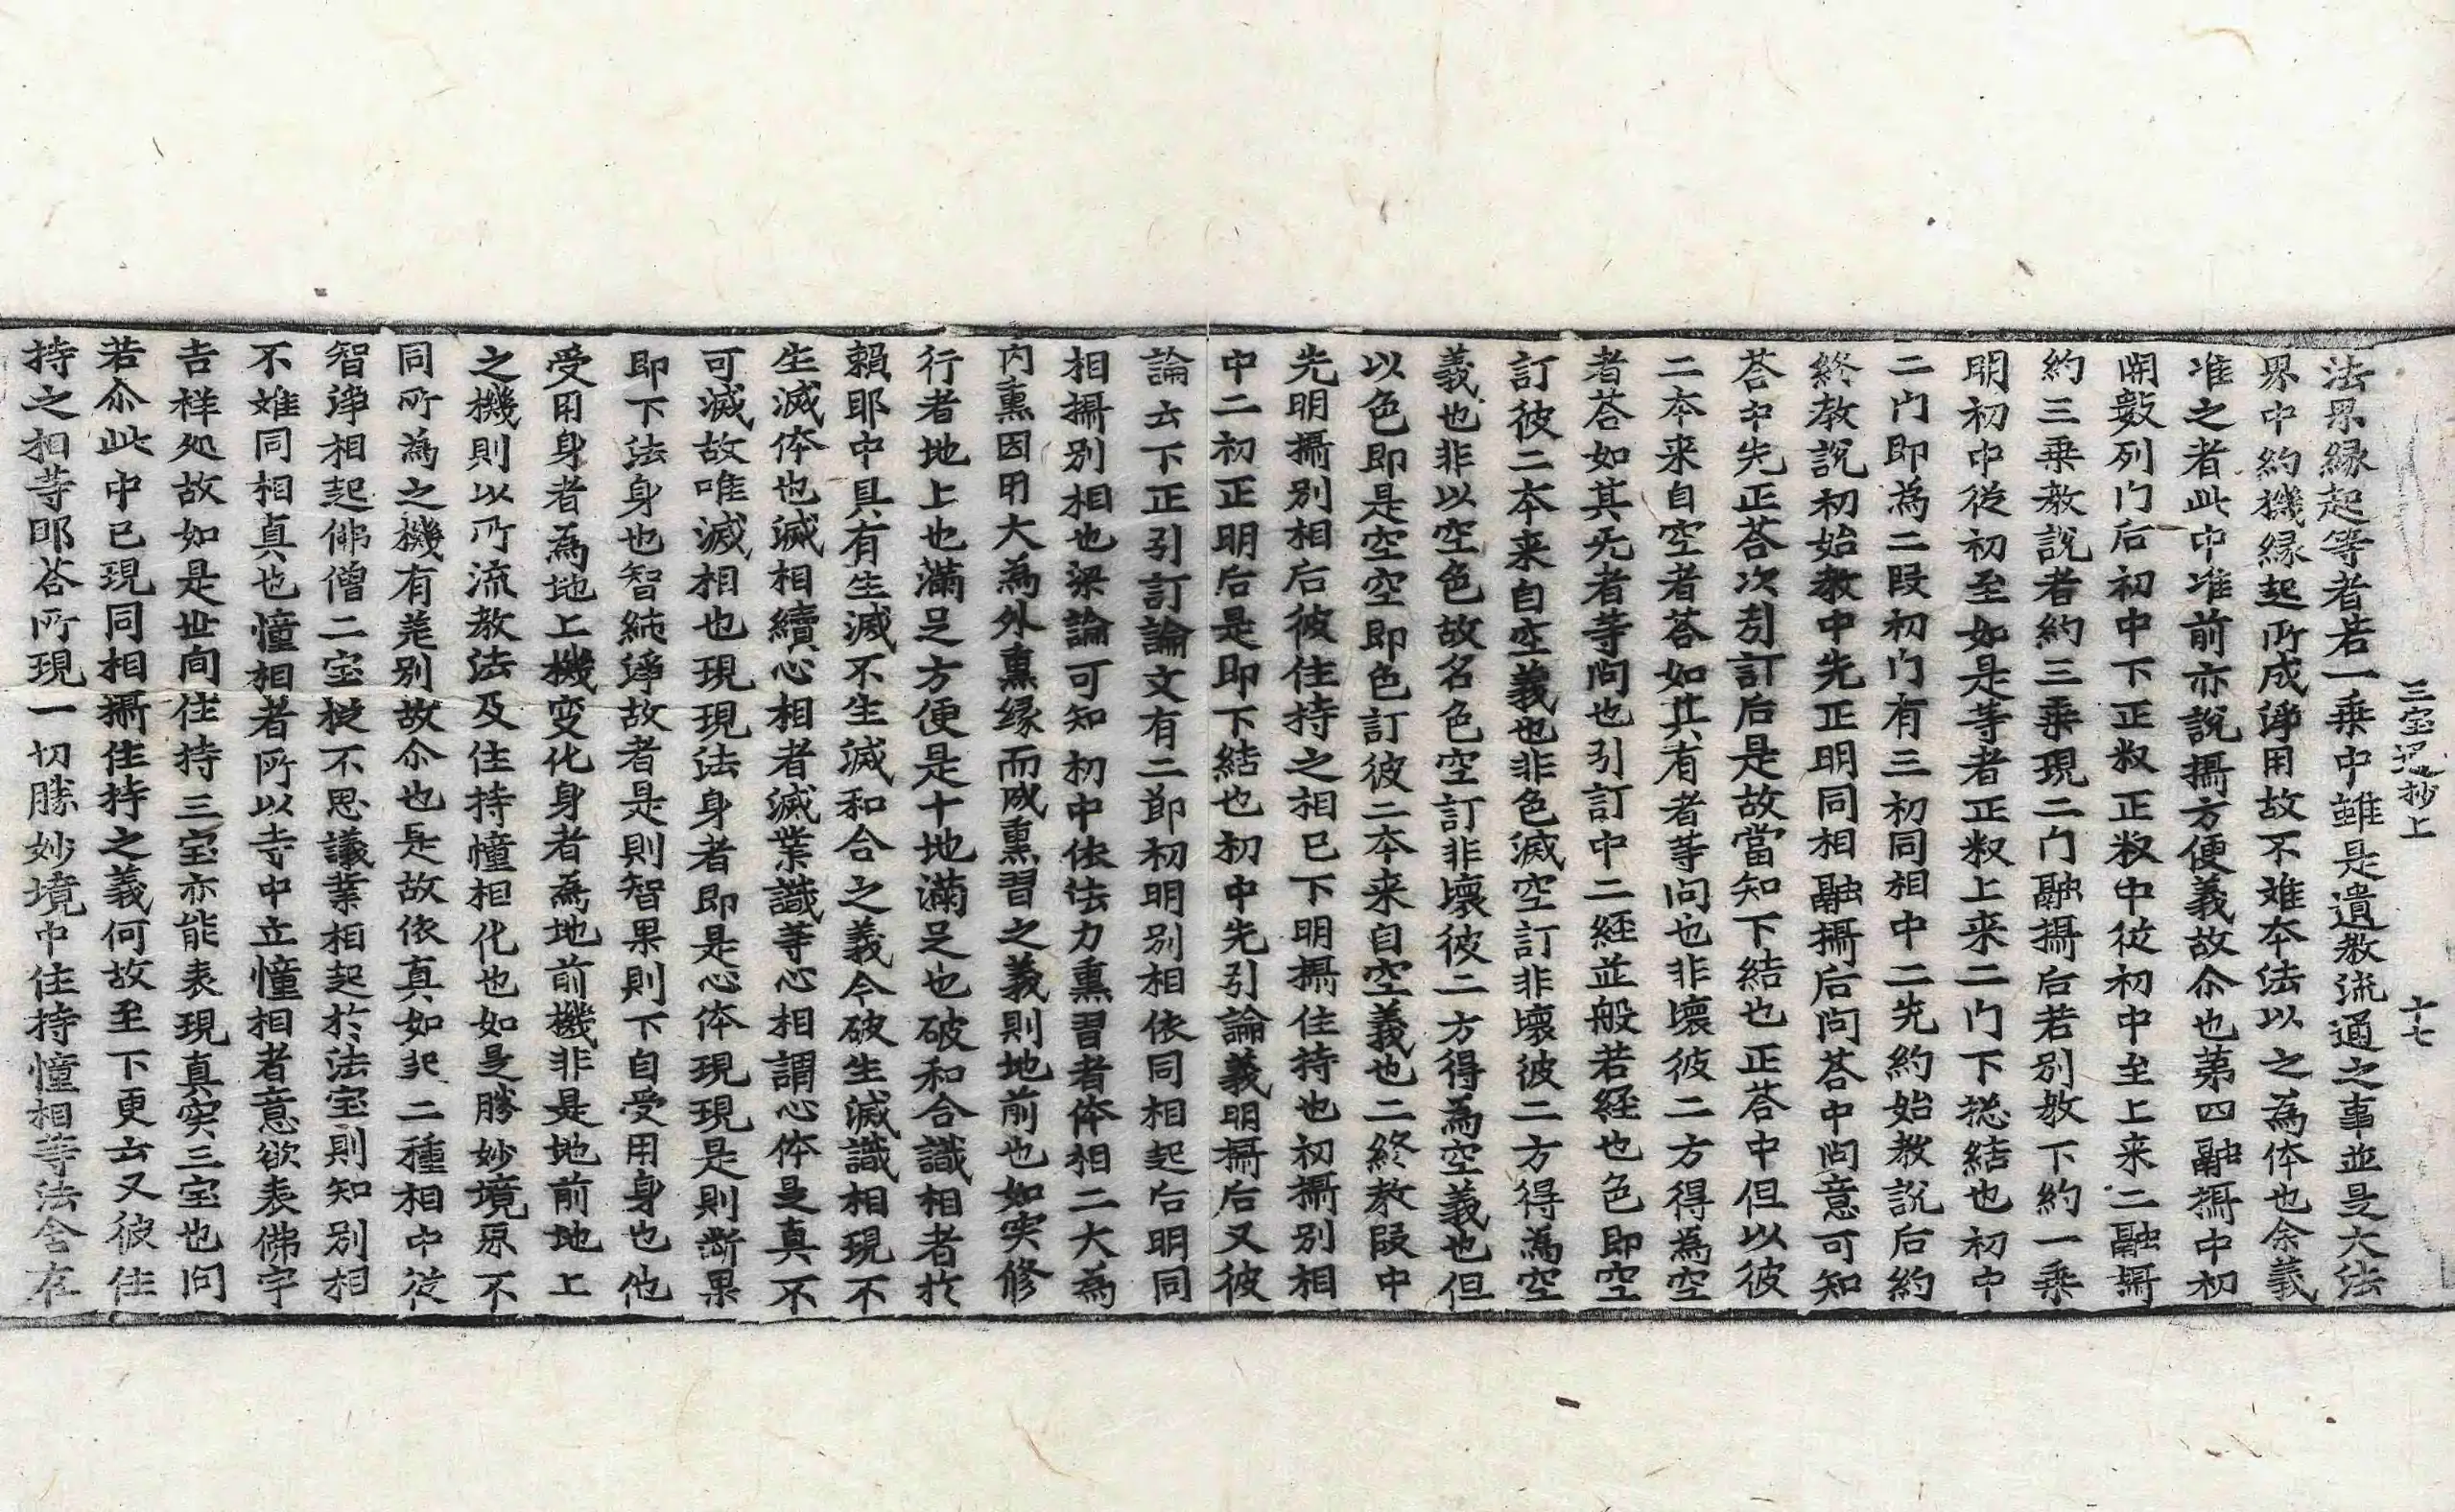 三宝迊抄上　十七
法界縁起等者若一乗中雖是遺教流通之事並是大法
界中約機縁起所成浄用故不難本法以之為体也余義
准之者此中准前亦說攝方便義故尒也苐四融攝中初
開數列门后初中下正㪅正㪅中從初中至上来二融攝
約三乗教說者約三乗現二门融攝后若別教下約一乗
明初中從初至如是等者正㪅上来二门下捴結也初中
二门即為二叚初门有三初同相中二先約始教說后約
終教說初始教中先正明同相融攝后问荅中问意可知
荅中先正荅次引訂后是故當知下結也正荅中但以彼
二本来自空者荅如其有者等问也非壞彼二方得為空
者荅如其无者等问也引訂中二経並般若経也色即空
訂彼二本来自空義也非色滅空訂非壞彼二方得為空
義也非以空色故名色空訂非壞彼二方得為空義也但
以色即是空空即色訂彼二本来自空義也二終教叚中
先明攝別相后彼住持之相已下明攝住持也初攝別相
中二初正明后是即下結也初中先引論義明攝后又彼
論云下正引訂論文有二節初明別相依同相起后明同
相攝別相也梁論可知初中依法力熏習者体相二大為
内熏因用大為外熏縁而成熏習之義則地前也如実修
行者地上也滿足方便是十地滿足也破和合識相者扵
賴耶中具有生滅不生滅和合之義今破生滅識相現不
生滅体也滅相續心相者滅業識等心相謂心体是真不
可滅故唯滅相也現現法身者即是心体現現是則断果
即下法身也智純淨故者是則智果則下自受用身也他
受用身者為地上機变化身者為地前機非是地前地上
之機則以所流教法及住持憧相化也如是勝妙境界不
同所為之機有差別故尒也是故依真如非二種相中從
智淨相起佛僧二宝從不思議業相起扵法宝則知別相
不難同相真也憧相者所以寺中立憧相者意欲表佛宇
吉祥処故如是世间住持三宝亦能表現真实三宝也问
若尒此中已現同相攝住持之義何故至下更云又彼住
持之相等耶荅所現一切勝妙境中住持憧相等法含在